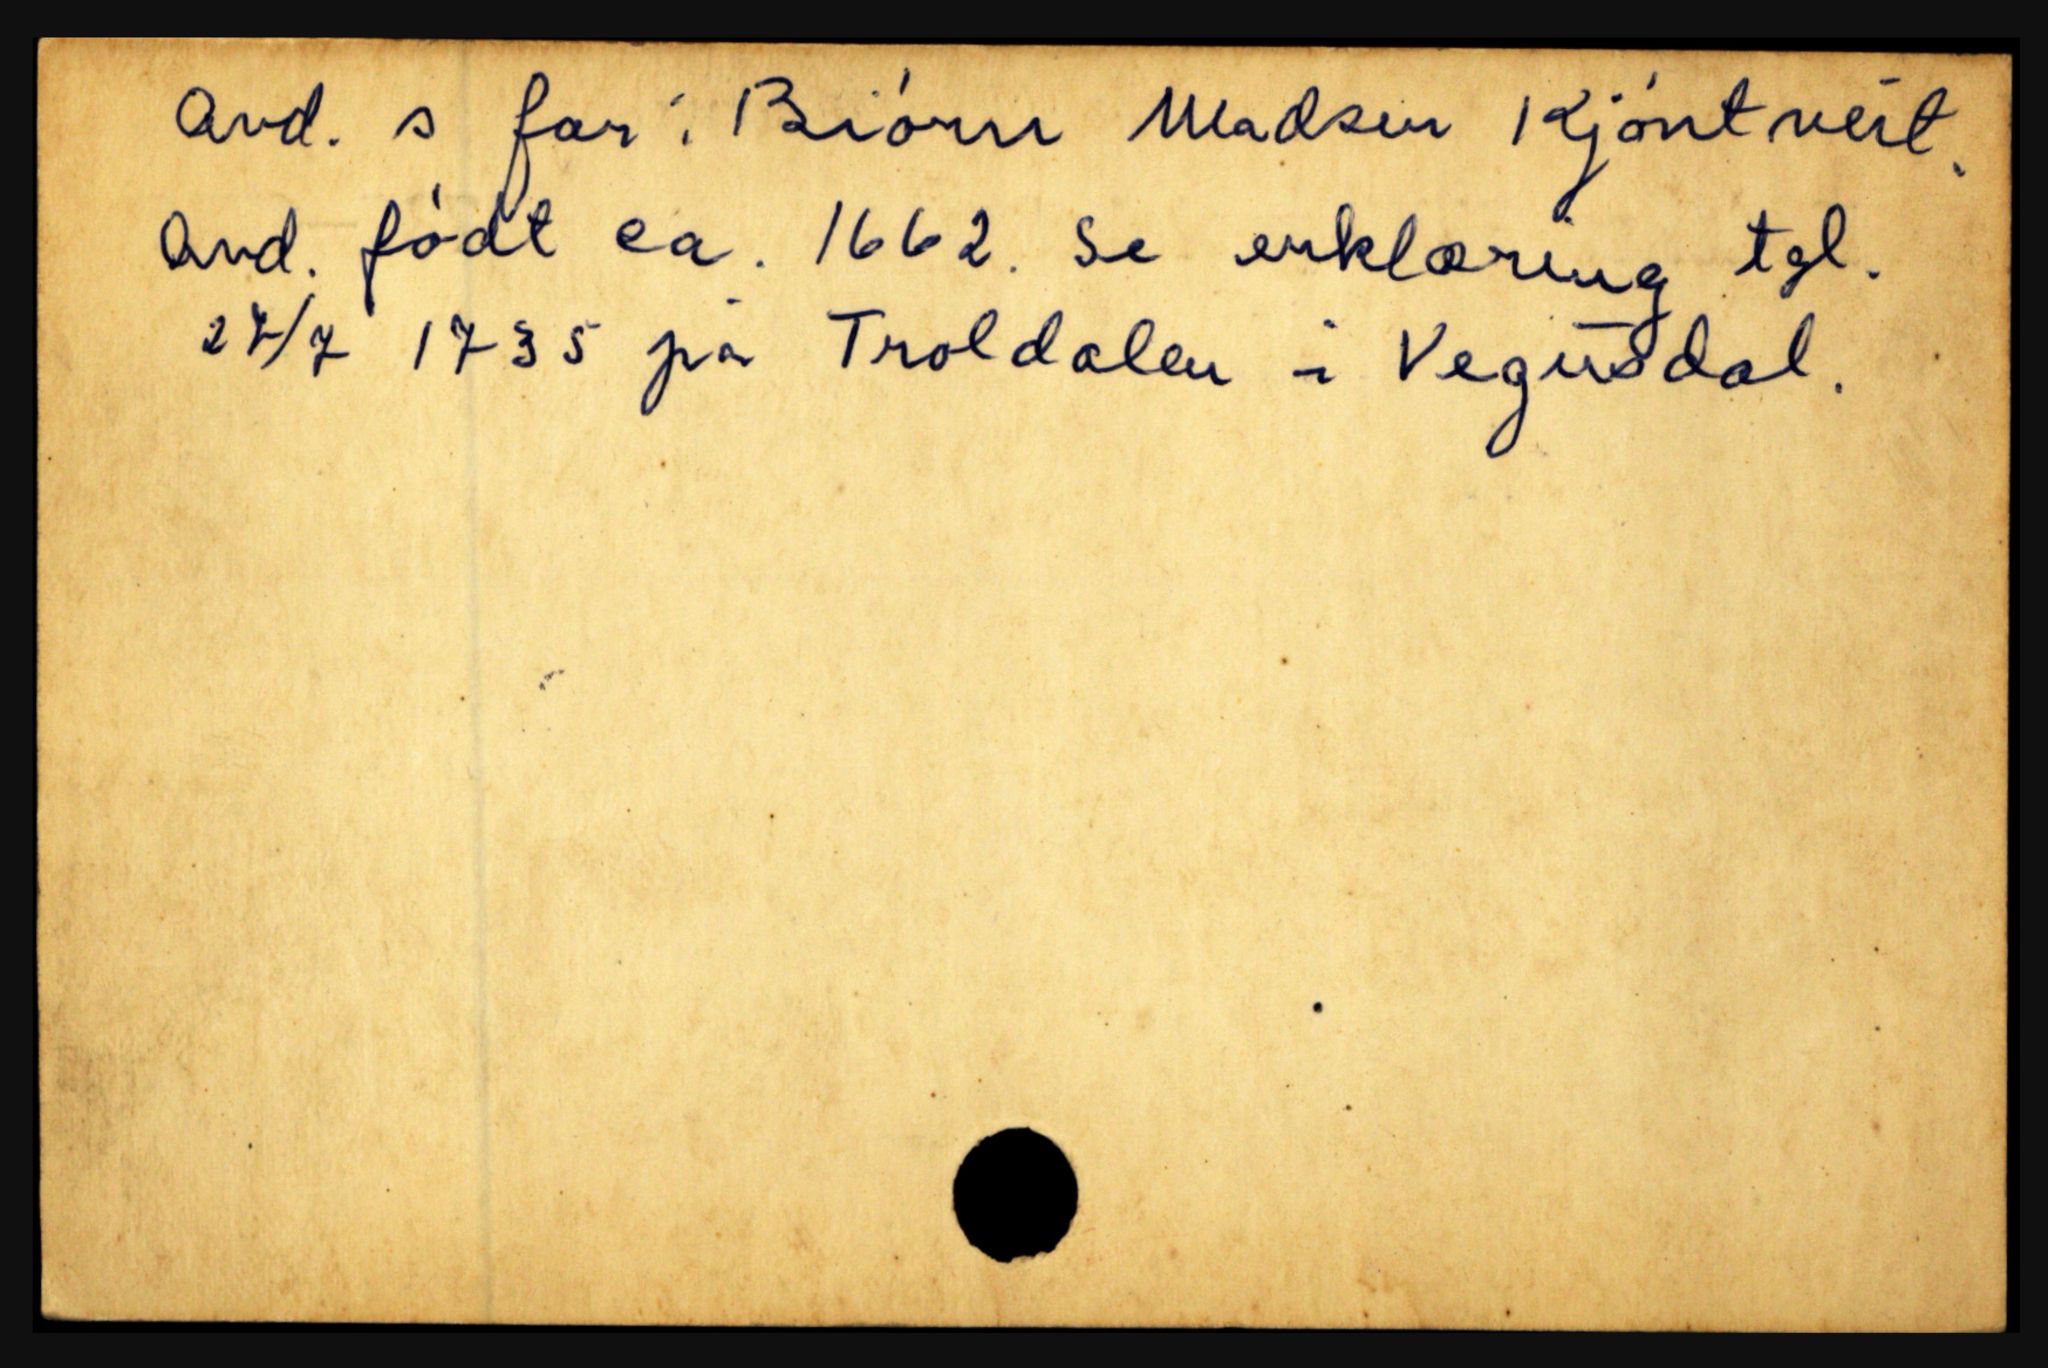 Avd. s far: Biórn Madsen Kjóntveit.
Avd. fódt ca. 1662. Se erklæring tgl.
27/7 1735 på Troldalen i Vegusdal.